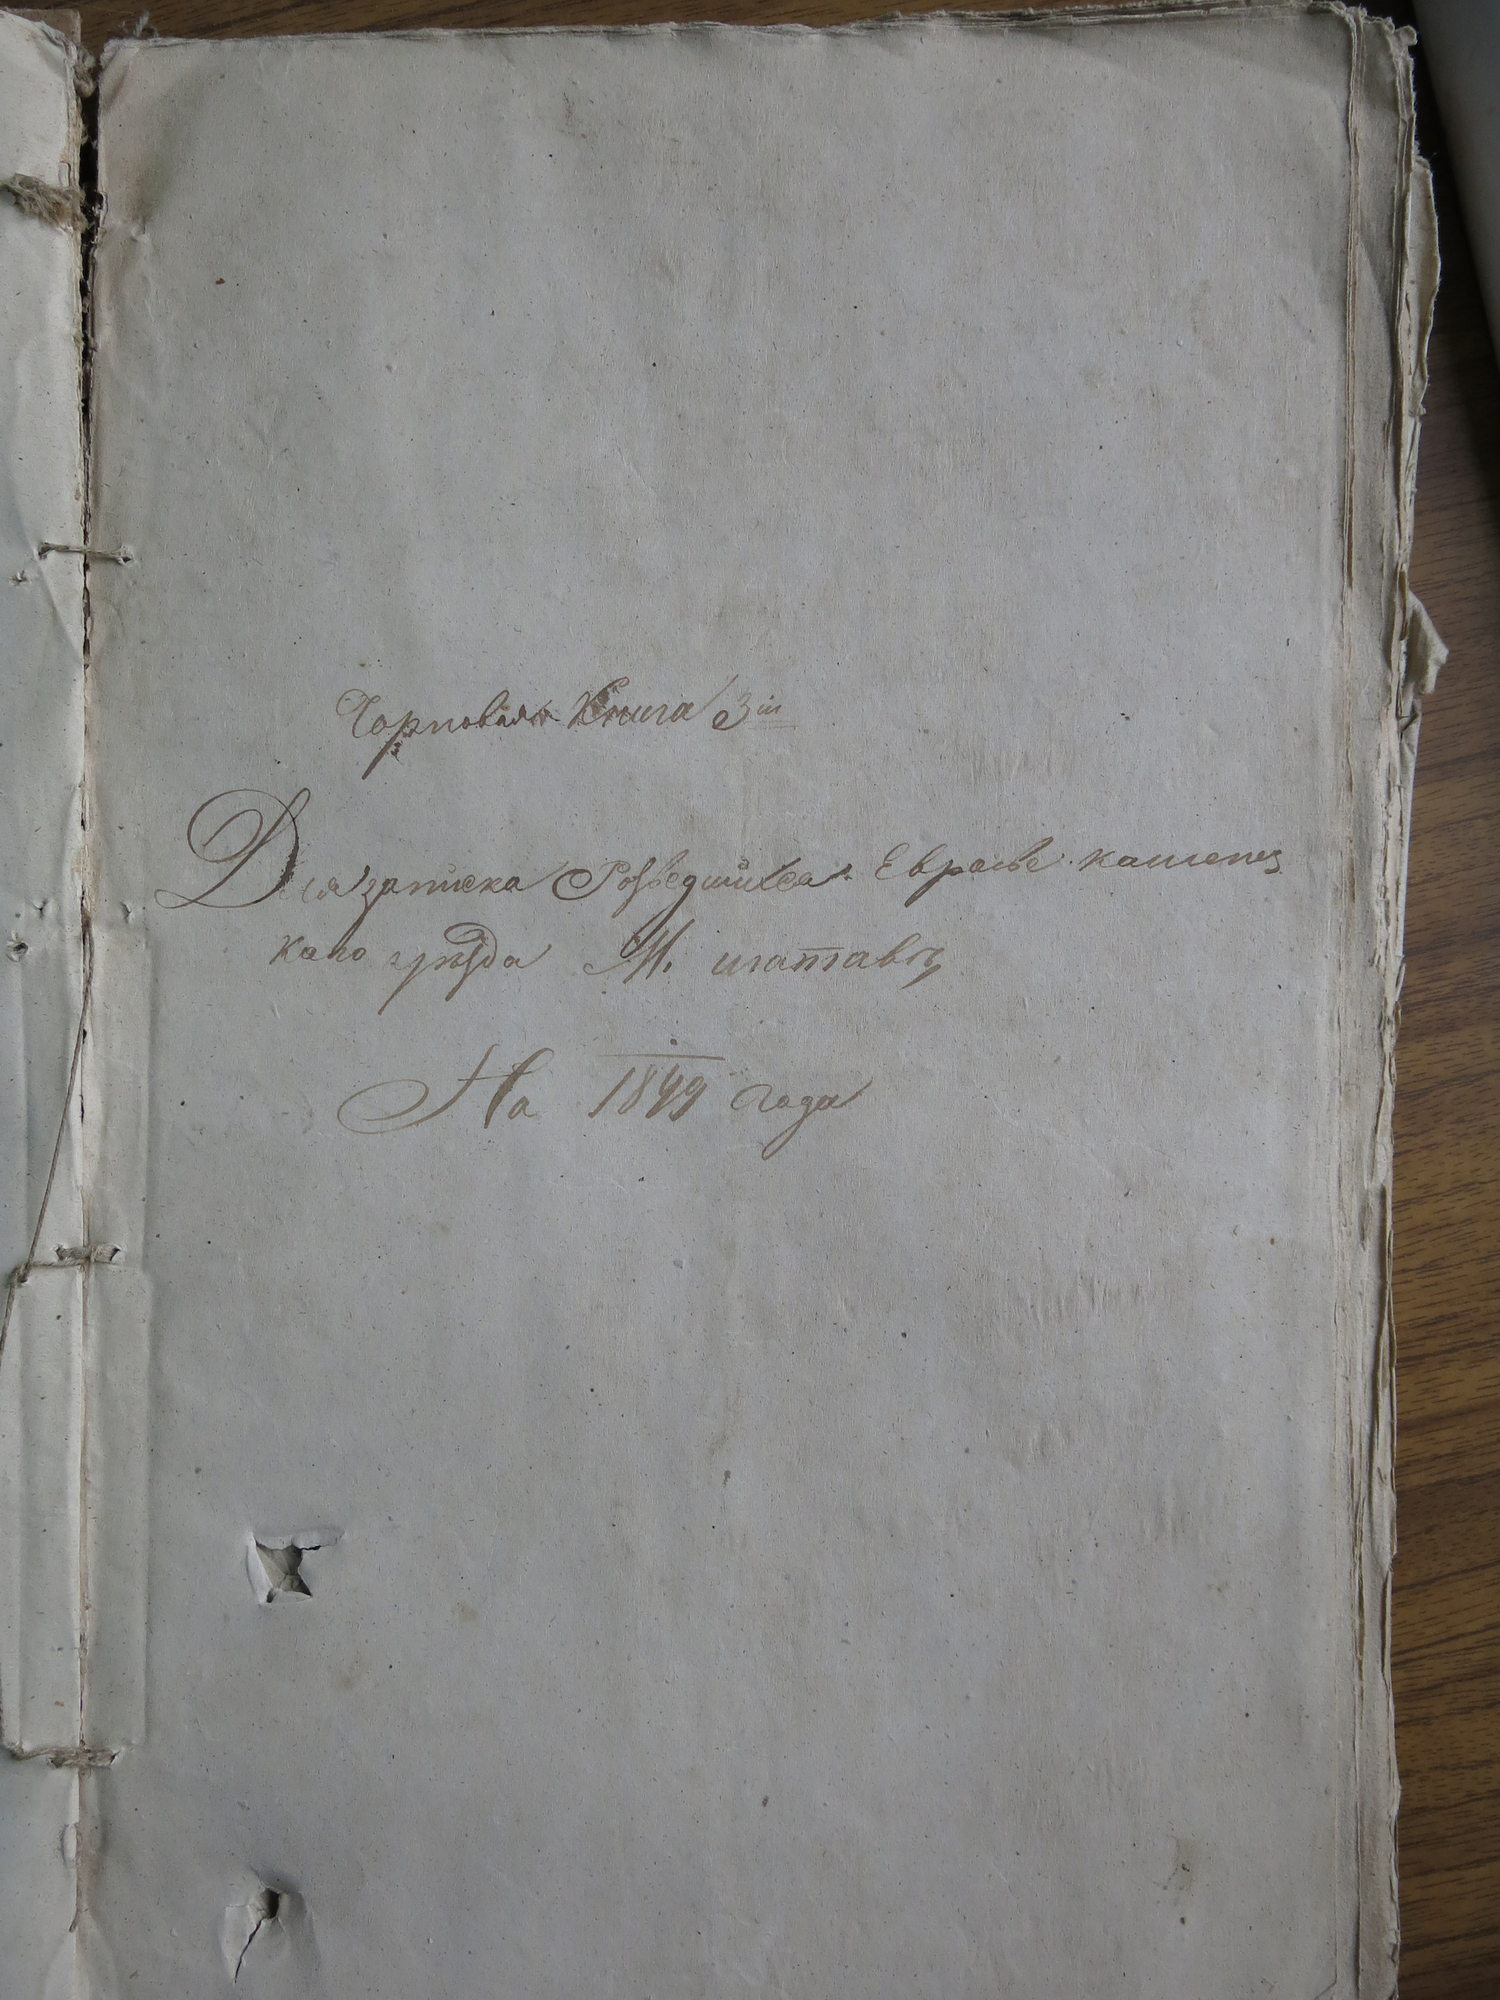 Чорновая Книга 3ій
Для записка Розведшихся Еврѣеве каменец
каго уѣзда М. шатавъ
На 1849 года